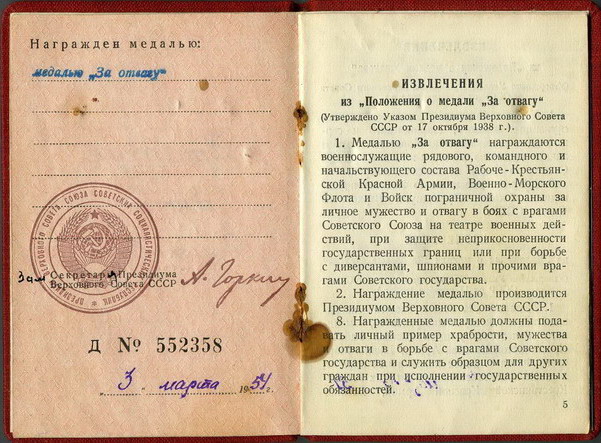 Награжден медалью:
медалью „За отвагу“
ПРЕЗИДИУМ ВЕРХОВНОГО СОВЕТА СОЮЗА СОВЕТСКИХ СОЦИАЛИСТИЧЕСКИХ РЕСПУБЛИК
Зам. Секретаря Президиума
Верховного Совета СССР А. Горкин
Д № 552358
„3“ марта 1951
ИЗВЛЕЧЕНИЯ
из „Положения о медали „За отвагу“
(Утверждено Указом Президиума Верховного Совета
СССР от 17 октября 1938 г.).
1. Медалью „За отвагу“ награждаются
военнослужащие рядового, командного и
начальствующего состава Рабоче-Крестьян-
ской Красной Армии, Военно-Морского
Флота и Войск пограничной охраны за
личное мужество и отвагу в боях с врагами
Советского Союза на театре военных дей-
ствий, при защите неприкосновенности
государственных границ или при борьбе
с диверсантами, шпионами и прочими вра-
гами Советского государства.
2. Награждение медалью производится
Президиумом Верховного Совета СССР.
8. Награжденные медалью должны пода-
вать личный пример храбрости, мужества
и отваги в борьбе с врагами Советского
государства и служить образцом для других
граждан при исполнении государственных
обязанностей.
5